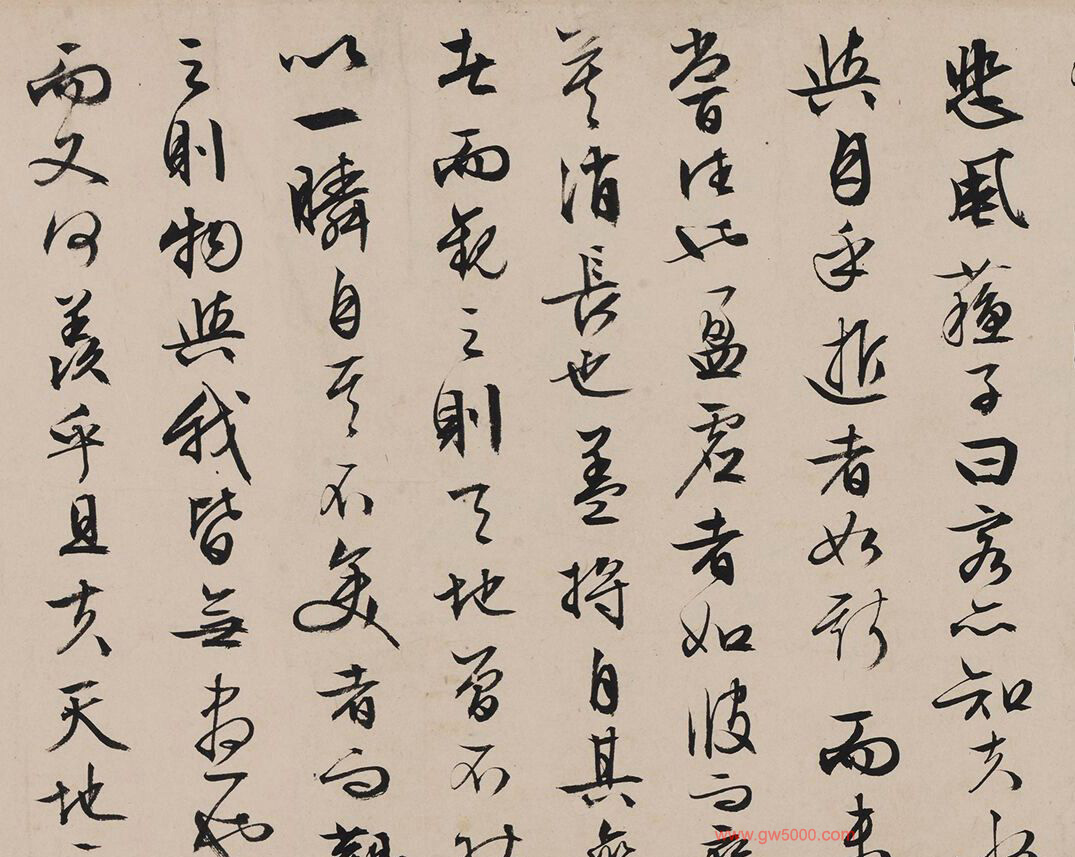 悲風蘓子曰客亦知夫
與月乎逝者如斯而未
嘗往也盈虛者如彼而
莫消長也蓋將自其
者而觀之則天地曾不
以一瞬自其不變者而觀
之則物與我皆無盡也
而又何羨乎且夫天地
www.gw5000.com